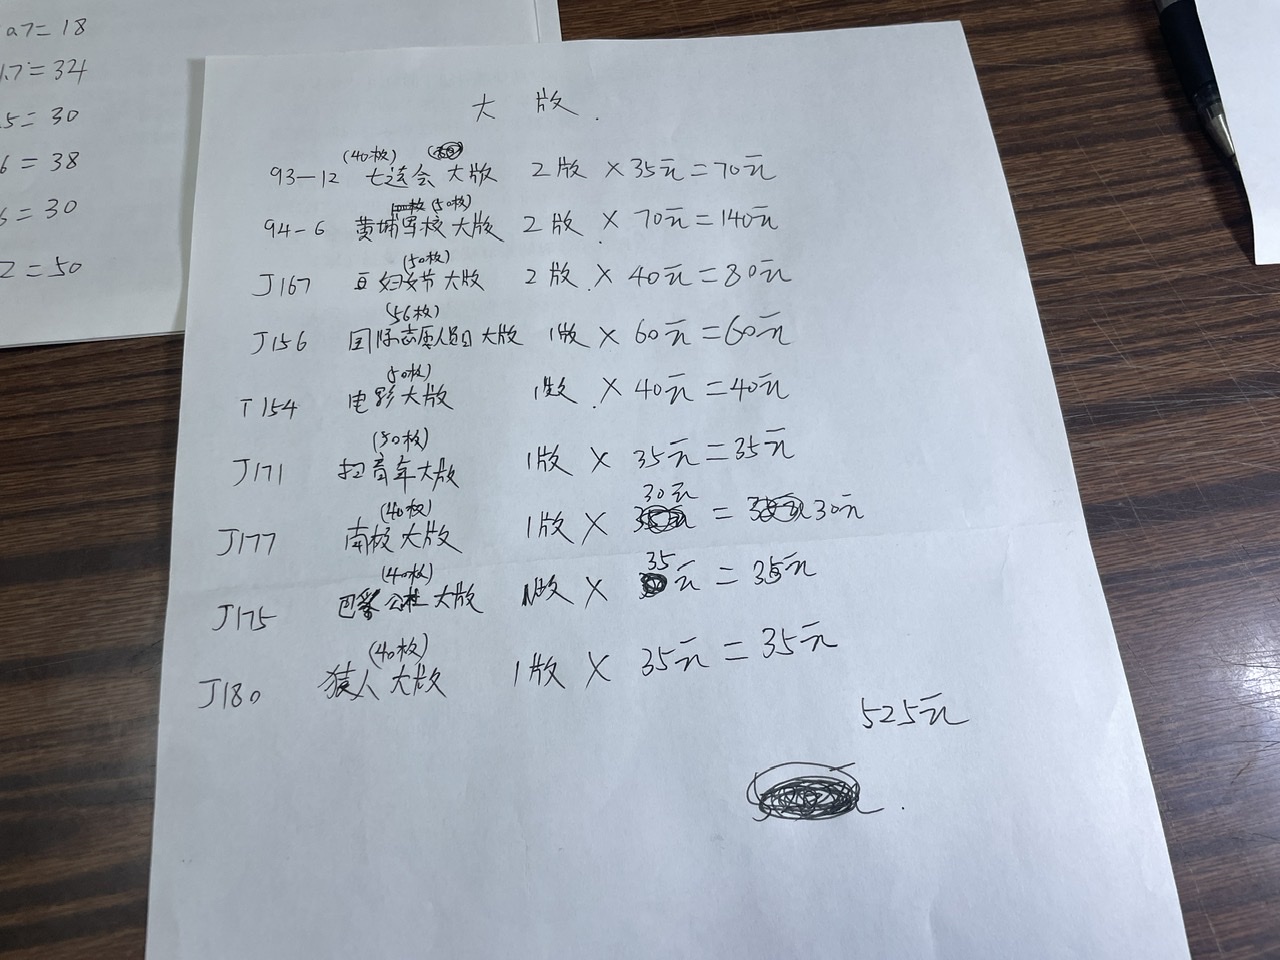 a7=18
1.7=34
5=30
6=38
6=30
2=50
大版.
(40枚)
93-12 七运会大版 2版×35元=70元
(50枚)
94-6 黄埔军校大版 2版×70元=140元
(50枚)
J167 妇女节大版 2版×40元=80元
(56枚)
J156 国际志愿人员日大版 1版×60元=60元
(50枚)
T154 电影大版 1版×40元=40元
(50枚)
J171 扫盲年大版 1版×35元=35元
(40枚) 30元
J177 南极大版 1版× =30元
(40枚) 35
J175 巴黎公社大版 1版× 元=35元
(40枚)
J180 猿人大版 1版×35元=35元
525元